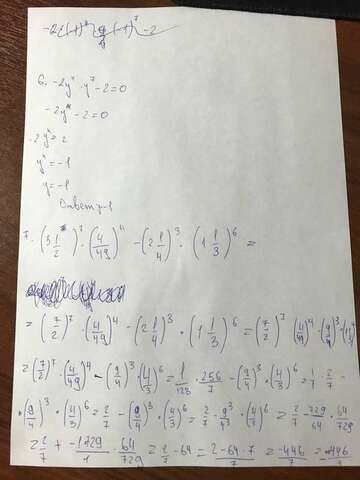 6. -2y⁴ · y⁷ - 2 = 0
-2y¹¹ - 2 = 0
-2y¹¹ = 2
y¹¹ = -1
y = -1
Ответ: -1
7. (3 1/2)⁷ · (4/49)⁴ - (2 1/4)³ · (1 1/3)⁶ =
= (7/2)⁷ · (4/49)⁴ - (2 1/4)³ · (1 1/3)⁶ = (7/2)⁷ · (4/49)⁴ - (9/4)³ ·
= (7/2)⁷ · (4/49)⁴ - (9/4)³ · (4/3)⁶ = 1/128 · 256/7 - (9/4)³ · (4/3)⁶ = 1/1 · 2/7 -
- (9/4)³ · (4/3)⁶ = 2/7 - (9/4)³ · (4/3)⁶ = 2/7 - 9³/4³ · (4/3)⁶ = 2/7 - 729/64 · 64
= 2/7 + -1729/1 · 64/729 = 2/7 - 64 = 2-64·7/7 = -446/7 = -446